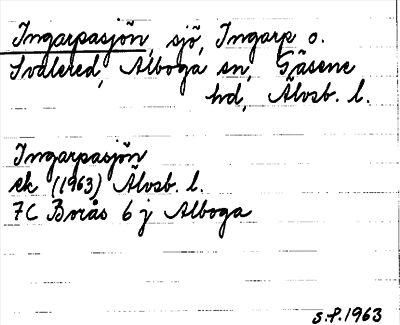 Ingarpasjön, sjö, Ingarp o.
Svalered, Alboga sn, Gäsene
hd, Älvsb. l.
Ingarpasjön
ek (1963) Älvsb. l.
7C Borås 6 j Alboga
s.f. 1963